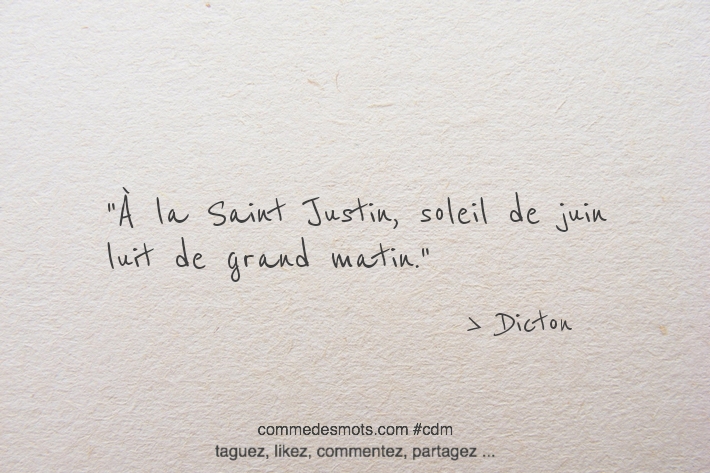 "À la Saint Justin, soleil de juin
luit de grand matin."
> Dicton
commedesmots.com #cdm
taguez, likez, commentez, partagez ...